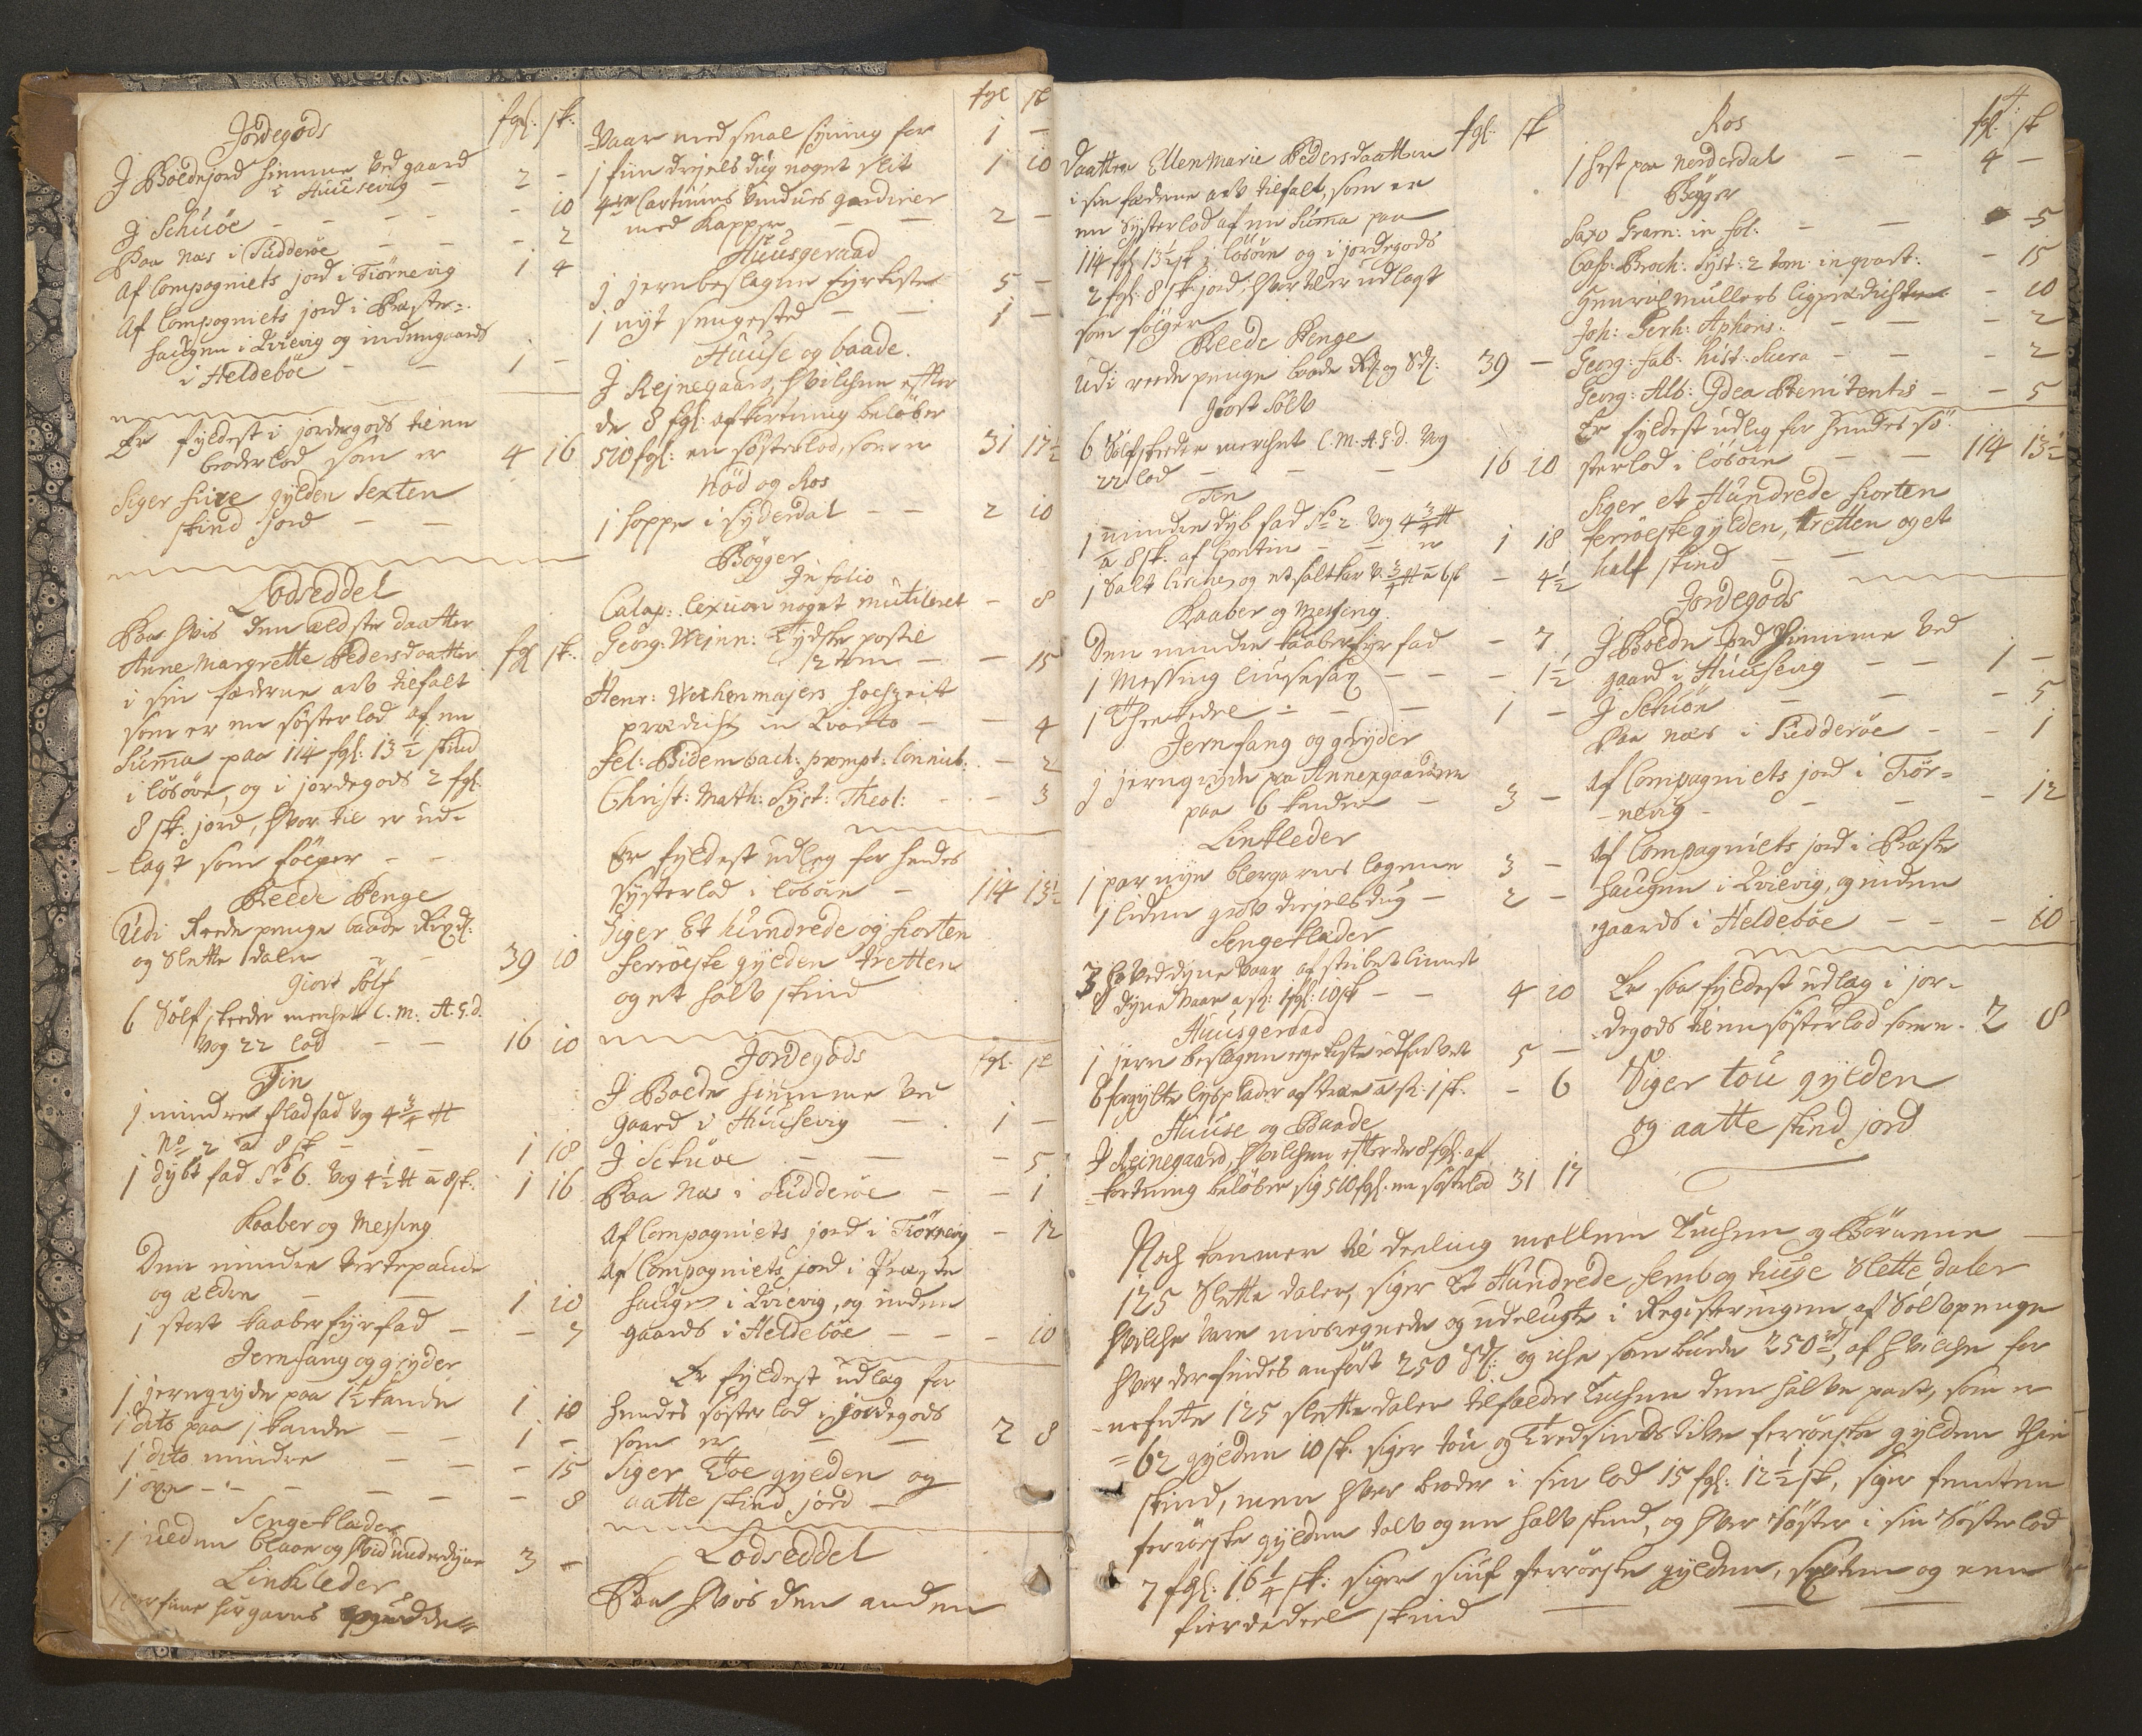 Jordegods fgl: sk:
J Boldnejord hiemme Ved gaard
i Huusevig - 2 -
J Schuöe - - - - - 10
Paa Næs i Sudderöe - - - 2
Af Compagniets jord i Tiörnevig 1 4
Af Compagniets jord i Præste-
haugen i Qvievig og indengaards
i Heldeböe - - 1 -
Er fyldest i jordegods til en
broderlod som er 4 16
Siger fiire gylden Sexten
skind jord - -
Lodseddel
Paa hvis den ældste daatter
Anne Margrette Pedersdaatter fgl sk:
i sin fæderne arv tilfalt
som er en Sösterlod af en
Summa paa 114 fgl: 13½ skind
i lösöre, og i jordegods 2 fgl:
8 sk: jord, hvor til er ud-
lagt som fölger - -
Reede Penge
Udi Reede penge baade Rixdl:
og Slette daler - - 39 10
Giort Sölf
6 Sölf skeeder merchet C. M. A. S. d.
Vog 22 lod - - 16 10
Tin
1 mindre fladfad Vog 4¾ ℔
No 2 a 8 sk - - 1 18
1 dybt fad No 6. Vog 4½ ℔ a 8 sk: 1 16
Kaaber og Messing
Den mindre Tertepande
og ældre - - 1 10
1 stort kaaberfyrfad - - 7
Jernfang og gryder
1 jerngryde paa 1½ kande 1 10
1 dito paa 1 kande - - 1 -
1 dito mindre - - - 15
1 öxe - - - - - 8
Sengeklæder
1 ulden blaae og hvid underdyne 3 -
Linklæder
1 par fiine hörgarns
fgl sk
Vaar med smal syning for 1 -
1 fiin drejels dug noget slit 1 10
4re Cartuns Vindues gardiner
med Kapper - - 2 -
Huusgeraad
1 jernbeslagen fyrkiste 5 -
1 nyt sengested - - 1 -
Huuse og baade.
J Rejnegaard, hvilchen efter
de 8 fgl: afkortning belöber
510 fgl: en sösterlod, som er 31 17½
Nöd og Ros
1 hoppe i Syderdal - - 2 10
Bögger
In folio
Calap: lexicon noget mutileret - 8
Georg: Weinn: Tydske postil
12 tom - - 15
Henr: Wachenmajers hochzeit
prædichen in Qvarto - - 4
Fel: Bidembach: prompt: Connub: - 2
Christ: Math: Syst: Theol: - - 3
Er fyldest udlæg for hendes
Sÿsterlod i lösöre - 114 13½
Siger Et hundrede og fiorten
ferröeske gylden tretten
og et halv skind
Jordegods fgl. sk
J Bolde hiemme Ved
gaard i Huusevig - 1 -
J Schuöe - - - 5
Paa Næs i Sudderöe - - 1
Af Compagniets jord i Tiörnevig - 12
Af Compagniets jord i Præste
haugen i Qvievig, og inden
gaards i Heldeböe - - - 10
Er fyldest udlæg for
hendes sösterlod i jordegods
som er - - 2 8
Siger Toe gylden og
aatte skind jord -
Lodseddel
Paa hvis den anden
4
fgl: sk
Daatter Ellen Marie Pedersdaatter
i sin fæderne arv tilfalt, som er
en Sÿsterlod af en Summa paa
114 fgl 13½ sk i lösöre og i jordegods
2 fgl: 8 sk: jord, hvortil er udlagt
som fölger
Reede Penge
Udi reede penge baade Rd: og Sd: 39 -
Giort Sölv
6 Sölfskeeder merchet C. M. A. S. d. Vog
22 lod - - - 16 10
Ten
1 mindre dyb fad No 2. Vog 4¾ ℔
a 8 sk: af Contin - - er 1 18
1 Salt Kirchen og et saltkar V: ¾ ℔ a 6 sk - 4½
Kaaber og Messing
Den mindre kaaberfyrfad - 7
1 Messing liusesax - - - 1½
1 Theekedel - - - 1 -
Jernfang og gryder
1 jerngryde fra Annexgaarden
paa 6 kander - 3 -
Linkleder
1 par nye blorgarns lagener 3 -
1 liden grov drejelsdug - 2 -
Sengeklæder
3 hovetdyne Vaar af stribet linnet
dyne Vaar a st: 1 fgl: 10 sk - - 4 10
Huusgeraad
1 jern beslagen ege kiste rödfarvet 5 -
6 forgylte lyseplader af træe a st: 1 sk: - 6
Huuse og Baade
J Reinegaard, hvilchen efter de 8 fgl: af-
kortning belöber sig 510 fgl: en sösterlod 31 17
Ros fgl: sk
1 hest paa Nerderdal - - 4 -
Bøger
Saxo Gram: in fol: - - - 5
Casp: Broch: Syst: 2 tom: in qvart: - 15
Henric Müllers ligprædichen - 10
Joh: Gerh: Aphoris: - - - 2
Georg: Fab: hist: Sacra - - - 2
Georg: Alb: Idea Penitentis - - 5
Er fyldest udlæg for hendes sö-
sterlod i lösöre - - 114 13½
Siger et Hundrede fiorten
ferröeske gylden, tretten og et
half skind - -
Jordegods
J Bolde jord hiemme Ved
gaard i Huusevig - - 1 -
J Schuöe - - - 5
Paa Næs i Sudderöe - - 1
Af Compagniets jord i Tiör-
-nevig - - - - 12
Af Compagniets jord i Præste
haugen i Qvievig, og inden
gaards i Heldeböe - - - 10
Er saa fyldest udlæg i jor-
degods til en sösterlod som er - 2 8
Siger tou gylden
og aatte skind jord
Noch kommer til deeling mellem Enchen og Börnene
125 Slette daler, siger Et Hundrede, femb og tiuge Slette daler
hvilche vare misregnede og udelugte i Registeringen af Sölvpenge
hvor der findes anfört 250 Sd: og iche som burde 250 rd, af hvilche for
-nefnte 125 slette daler tilfalder Enchen den halve part, som er
=62 gylden 10 sk: siger tou og Tredsinds tive ferröeske gylden thie
skind, men hver broder i sin lod 15 fgl: 12½ sk, siger femten
ferröeske gylden tolv og en halv skind, og hver söster i sin Sösterlod
7 fgl: 16¼ sk: siger siuf ferröeske gylden, sexten og een
fierdedeel skind